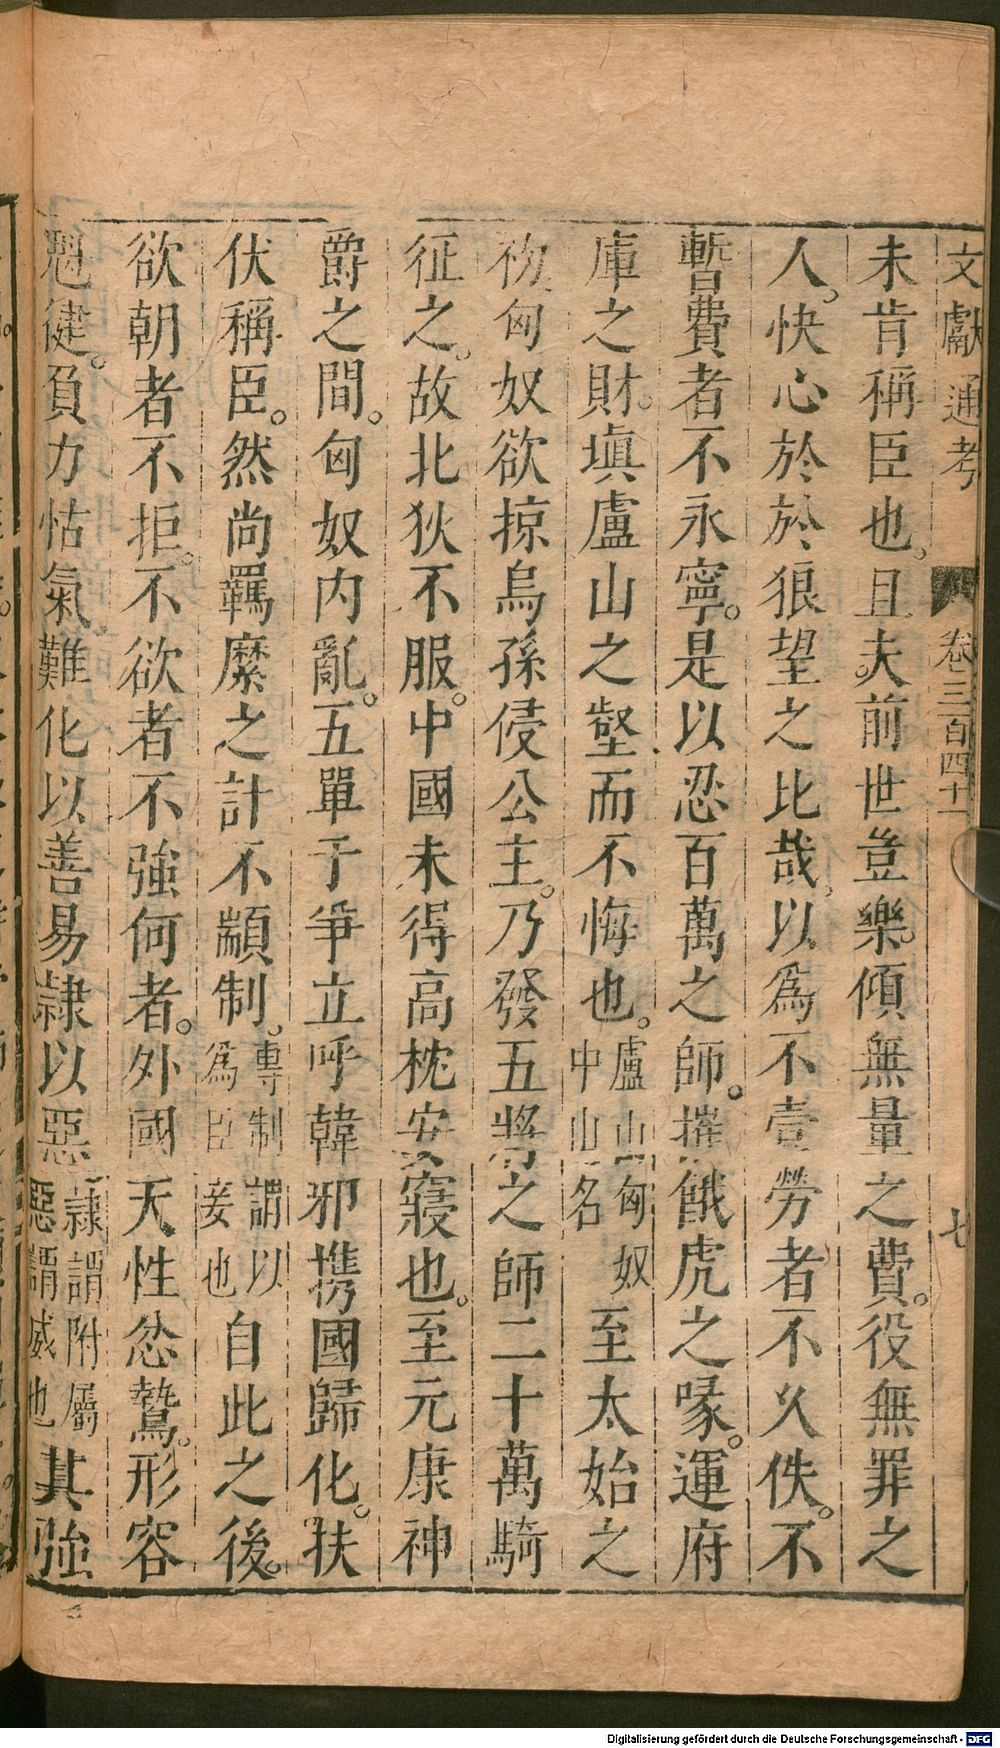 文獻通考 卷三百四十一 七
未肯稱臣也。且夫前世豈樂傾無量之費。役無罪之
人。快心於於狼望之北哉。以爲不壹勞者不久佚。不
暫費者不永寧。是以忍百萬之師。摧餓虎之喙。運府
庫之財。塡盧山之壑而不悔也。盧山匈奴中山名至太始之
初匈奴欲掠烏孫侵公主。乃發五將之師二十萬騎
征之。故北狄不服。中國未得高枕安寢也。至元康神
爵之間。匈奴内亂。五單于爭立呼韓邪携國歸化。扶
伏稱臣。然尚羈縻之計不顓制。專制謂以爲臣妾也自此之後。
欲朝者不拒。不欲者不強何者。外國天性忿鷙。形容
魁健。負力怙氣難化以善易隸以惡隸謂附屬惡謂威也其強
Digitalisierung gefördert durch die Deutsche Forschungsgemeinschaft - DFG